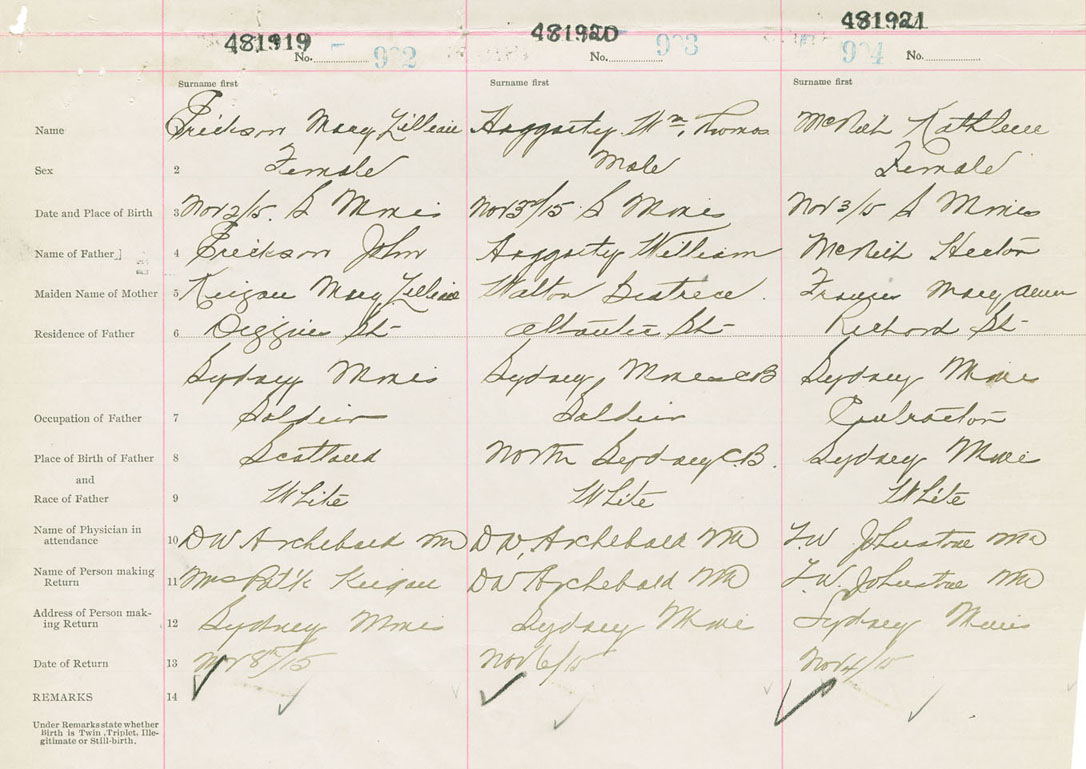 481919 481920 481921
No. 902 No. 903 904 No.
Surname first Surname first Surname first
Name Erickson Mary Lillian Haggarty Wm. Thomas McNeil Kathleen
Sex 2 Female Male Female
Date and Place of Birth 3 Nov 2/15. S Mines Nov 3rd/15 S Mines Nov 3/15 S Mines
Name of Father 4 Erickson John Haggarty William McNeil Hector
Maiden Name of Mother 5 Keigan Mary Lillian Walton Beatrice. Mary
Residence of Father 6 St Atlantic St Richard St
Sydney Mines Sydney Mines CB Sydney Mines
Occupation of Father 7 Soldier Soldier Contractor
Place of Birth of Father 8 Scotland North Sydney C.B. Sydney Mines
and
Race of Father 9 White White White
Name of Physician in
attendance 10 DW Archebald MD DW. Archebald MD T.W Johnstone MD
Name of Person making
Return 11 Mrs Pat'k Keigan DW Archebald MD T.W. Johnstone MD
Address of Person mak-
ing Return 12 Sydney Mines Sydney Mines Sydney Mines
Date of Return 13 Nov 8th/15 Nov 6/15 Nov 4/15
REMARKS 14
Under Remarks state whether
Birth is Twin, Triplet, Ille-
gitimate or Still-birth.